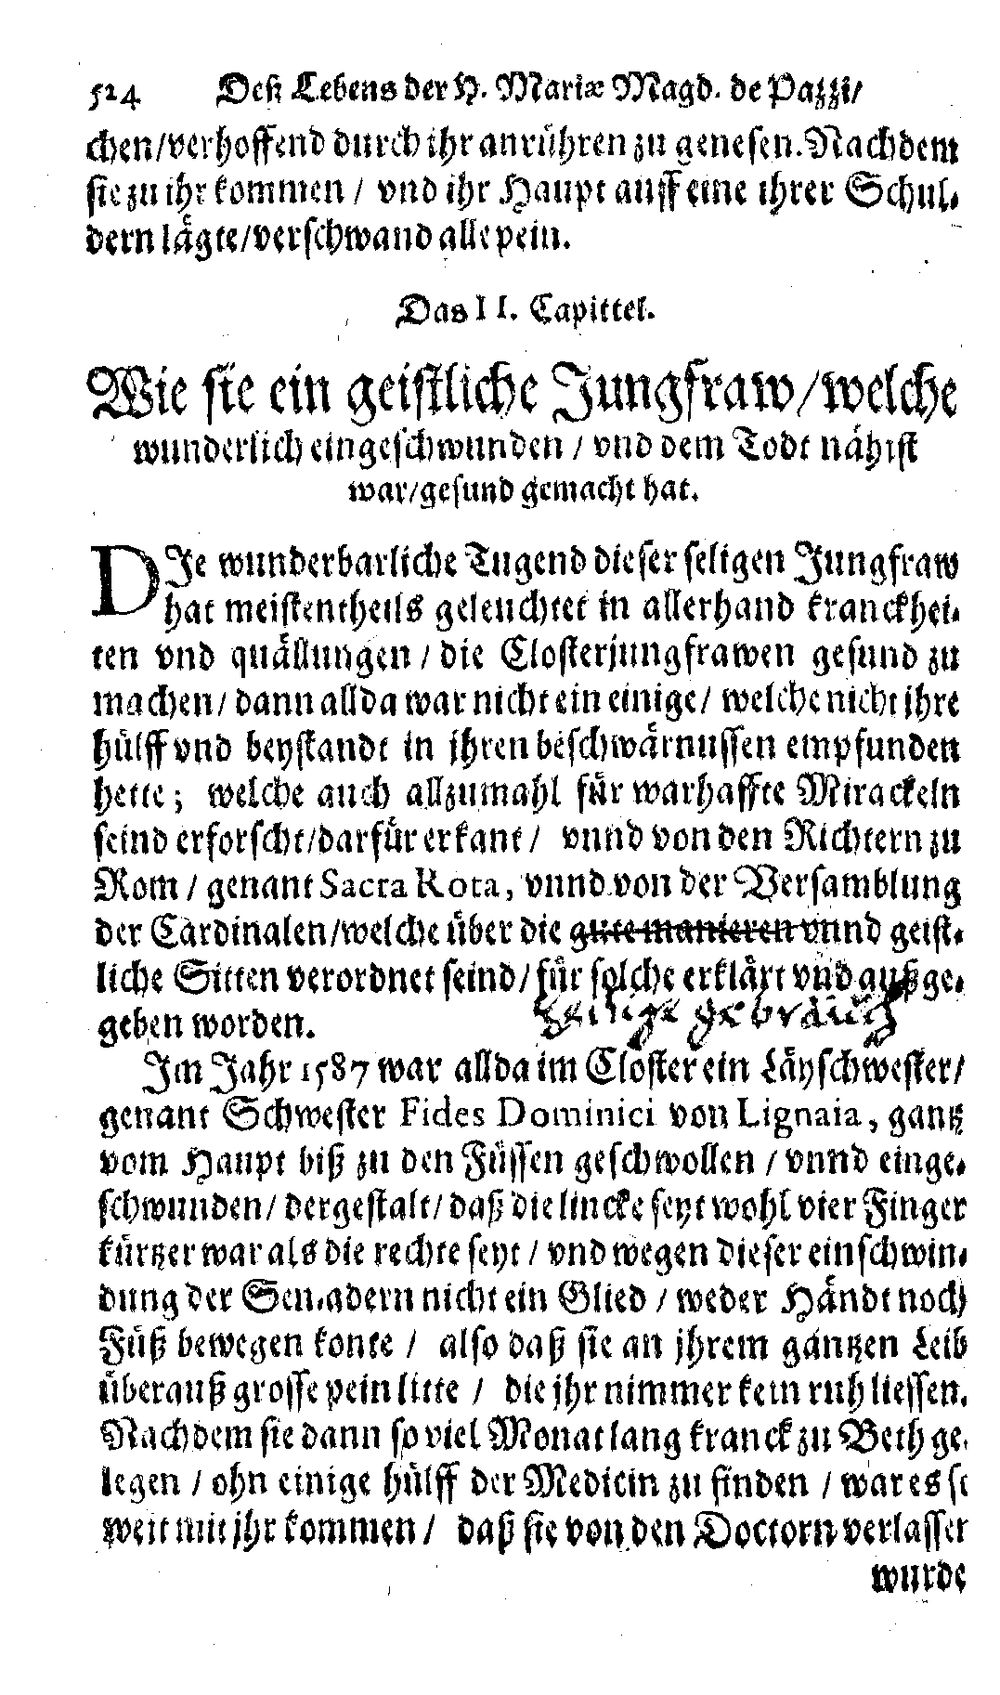 524 Deß Lebens der H. Mariæ Magd. de Pazzi/
chen/verhoffend durch ihr anrühren zu genesen. Nachdem
sie zu ihr kommen / vnd ihr Haupt auff eine ihrer Schul-
dern lägte/verschwand alle pein.
Das II. Capittel.
Wie sie ein geistliche Jungfraw/welche
wunderlich eingeschwunden / vnd dem Todt nähist
war/gesund gemacht hat.
DJe wunderbarliche Tugend dieser seligen Jungfraw
hat meistentheils geleuchtet in allerhand kranckhei-
ten vnd quällungen / die Closterjungfrawen gesund zu
machen/ dann allda war nicht ein einige/ welche nicht jhre
hülff vnd beystandt in jhren beschwärnussen empfunden
hette; welche auch allzumahl für warhaffte Mirackeln
seind erforscht/darfür erkant / vnnd von den Richtern zu
Rom / genant Sacra Rota, vnnd von der Versamblung
der Cardinalen/welche über die gute manieren vnnd geist-
liche Sitten verordnet seind/ für solche erklärt vnd außge-
heilige gebräuch
geben worden.
Jm Jahr 1587 war allda im Closter ein Läyschwester/
genant Schwester Fides Dominici von Lignaia, gantz
vom Haupt biß zu den Füssen geschwollen / vnnd einge-
schwunden/ dergestalt/ daß die lincke seyt wohl vier Finger
kürtzer war als die rechte seyt / vnd wegen dieser einschwin-
dung der Sen-adern nicht ein Glied / weder Händt noch
Füß bewegen konte / also daß sie an jhrem gantzen Leib
überauß grosse pein litte / die jhr nimmer kein ruh liessen.
Nachdem sie dann so viel Monat lang kranck zu Beth ge-
legen / ohn einige hülff der Medicin zu finden / war es so
weit mit jhr kommen / daß sie von den Doctorn verlassen
wurde